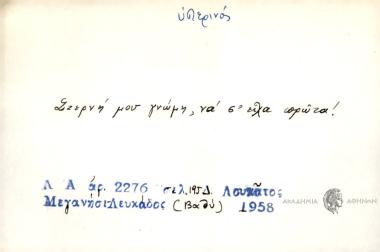 ὑστερινός
Στερνή μου γνώμη, νά σ' εἶχα πρῶτα!
Λ Α ἀρ. 2276 σελ. 195Δ. Λουκᾶτος
Μεγανήσι Λευκάδος (Βαθύ) 1958
ΑΚΑΔΗΜΙΑ ΑΘΗΝΩΝ